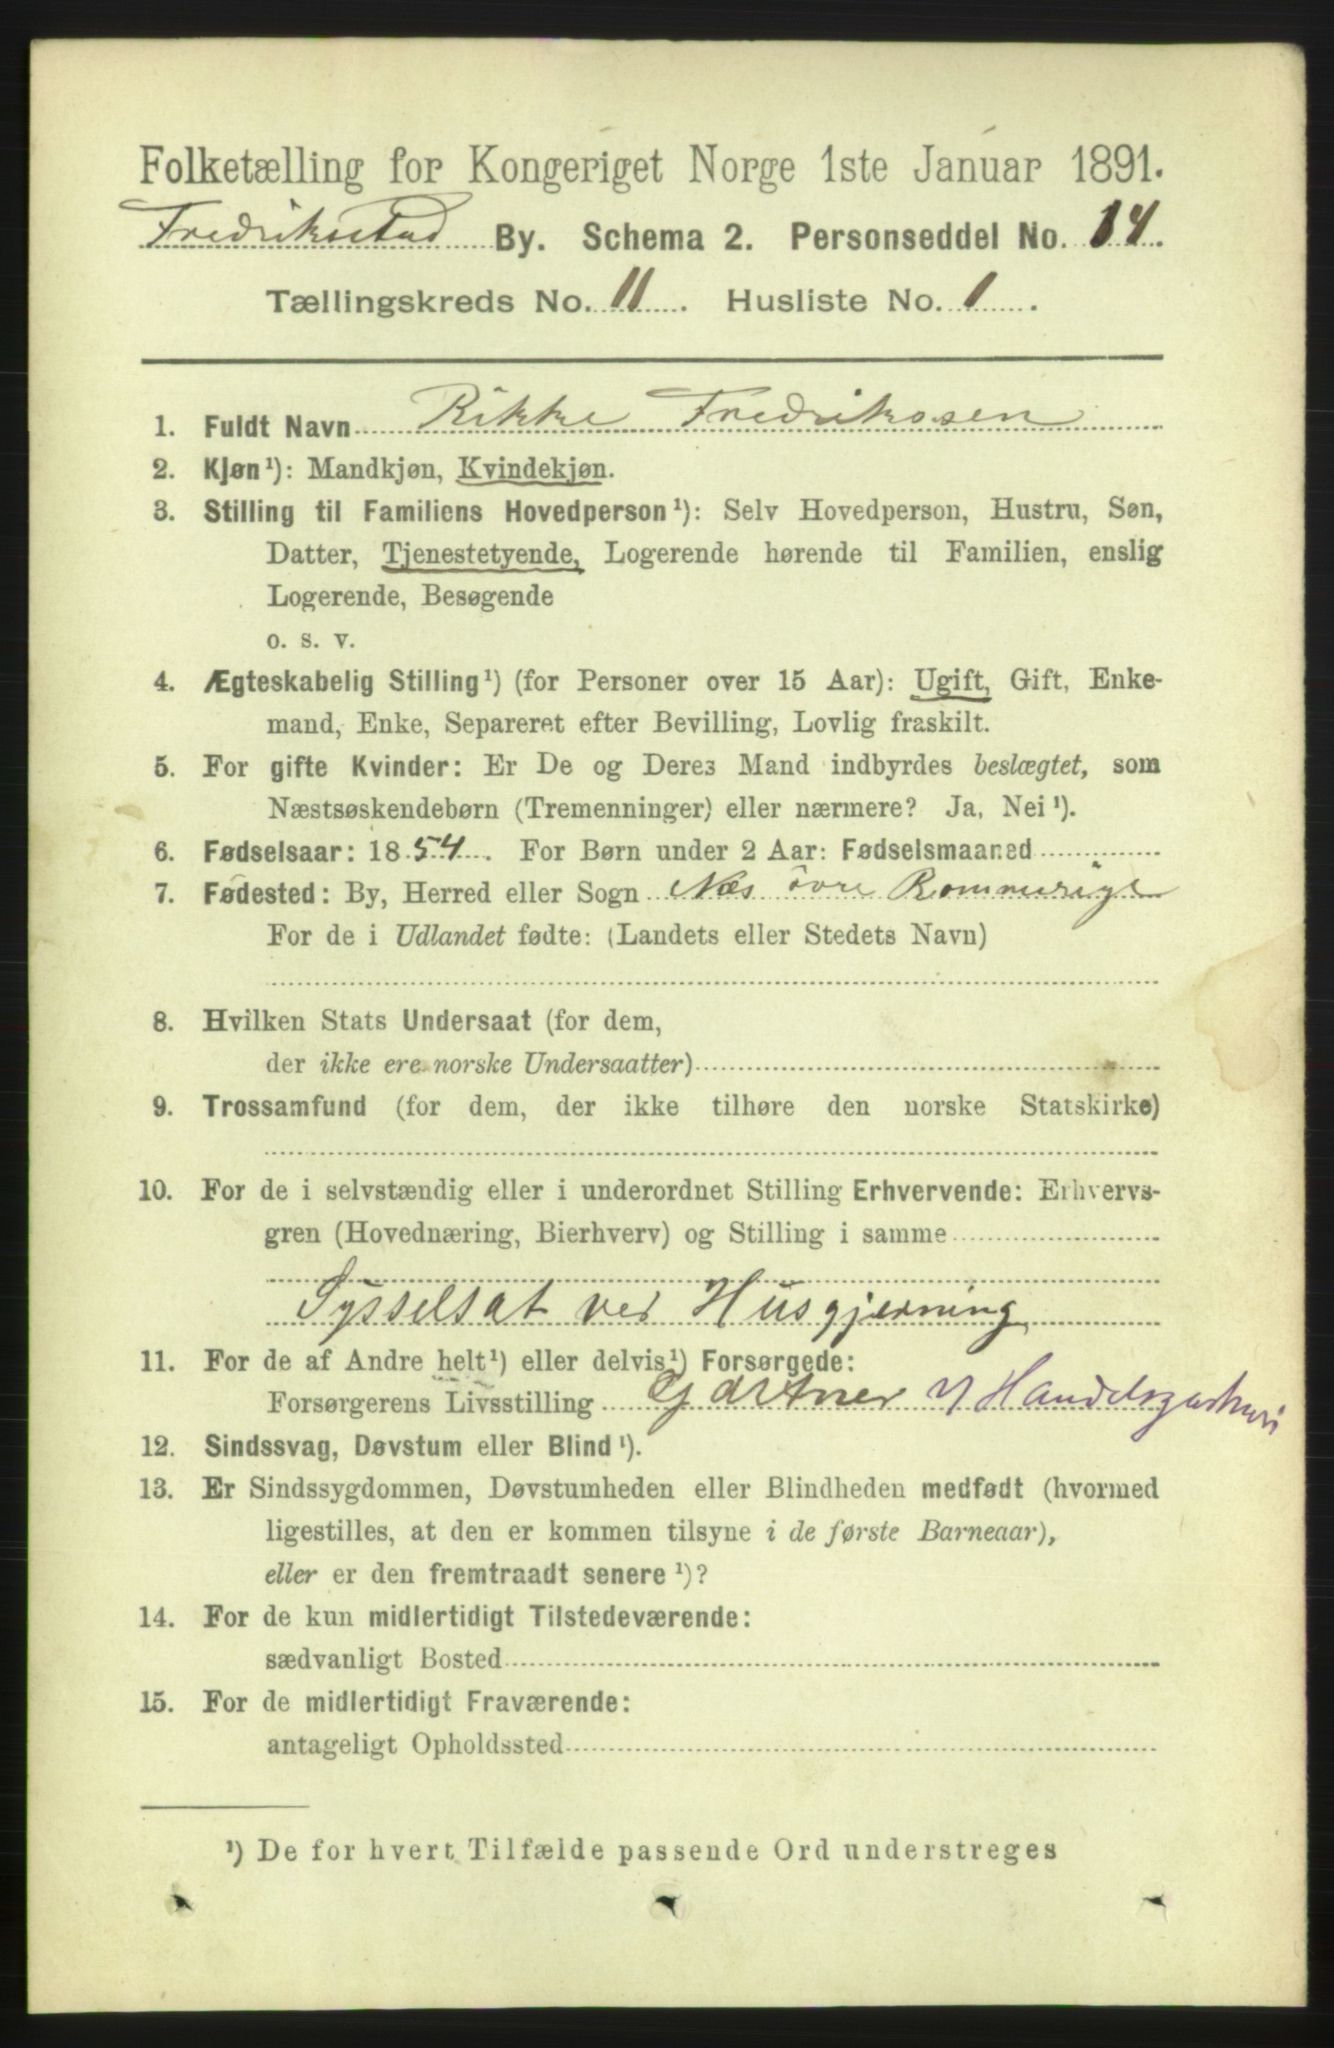 Folketælling for Kongeriget Norge 1ste Januar 1891.
Fredrikstad By. Schema 2. Personseddel No. 14.
Tællingskreds No. 11. Husliste No. 1.
1. Fuldt Navn Rikke Fredriksen
2. Kjøn¹): Mandkjøn, Kvindekjøn.
3. Stilling til Familiens Hovedperson¹): Selv Hovedperson, Hustru, Søn,
Datter, Tjenestetyende, Logerende hørende til Familien, enslig
Logerende, Besøgende
o. s. v.
4. Ægteskabelig Stilling¹) (for Personer over 15 Aar): Ugift, Gift, Enke-
mand, Enke, Separeret efter Bevilling, Lovlig fraskilt.
5. For gifte Kvinder: Er De og Deres Mand indbyrdes beslægtet, som
Næstsøskendebørn (Tremenninger) eller nærmere? Ja, Nei¹).
6. Fødselsaar: 1854. For Børn under 2 Aar: Fødselsmaaned
7. Fødested: By, Herred eller Sogn Næs övre Rommerige
For de i Udlandet fødte: (Landets eller Stedets Navn)
8. Hvilken Stats Undersaat (for dem,
der ikke ere norske Undersaatter)
9. Trossamfund (for dem, der ikke tilhøre den norske Statskirke)
10. For de i selvstændig eller i underordnet Stilling Erhvervende: Erhvervs-
gren (Hovednæring, Bierhverv) og Stilling i samme
Sysselsat ved Husgjerning
11. For de af Andre helt¹) eller delvis¹) Forsørgede:
Forsørgerens Livsstilling Gartner v/ Handelsgartneri
12. Sindssvag, Døvstum eller Blind¹).
13. Er Sindssygdommen, Døvstumheden eller Blindheden medfødt (hvormed
ligestilles, at den er kommen tilsyne i de første Barneaar),
eller er den fremtraadt senere¹)?
14. For de kun midlertidigt Tilstedeværende:
sædvanligt Bosted
15. For de midlertidigt Fraværende:
antageligt Opholdssted
¹) De for hvert Tilfælde passende Ord understreges